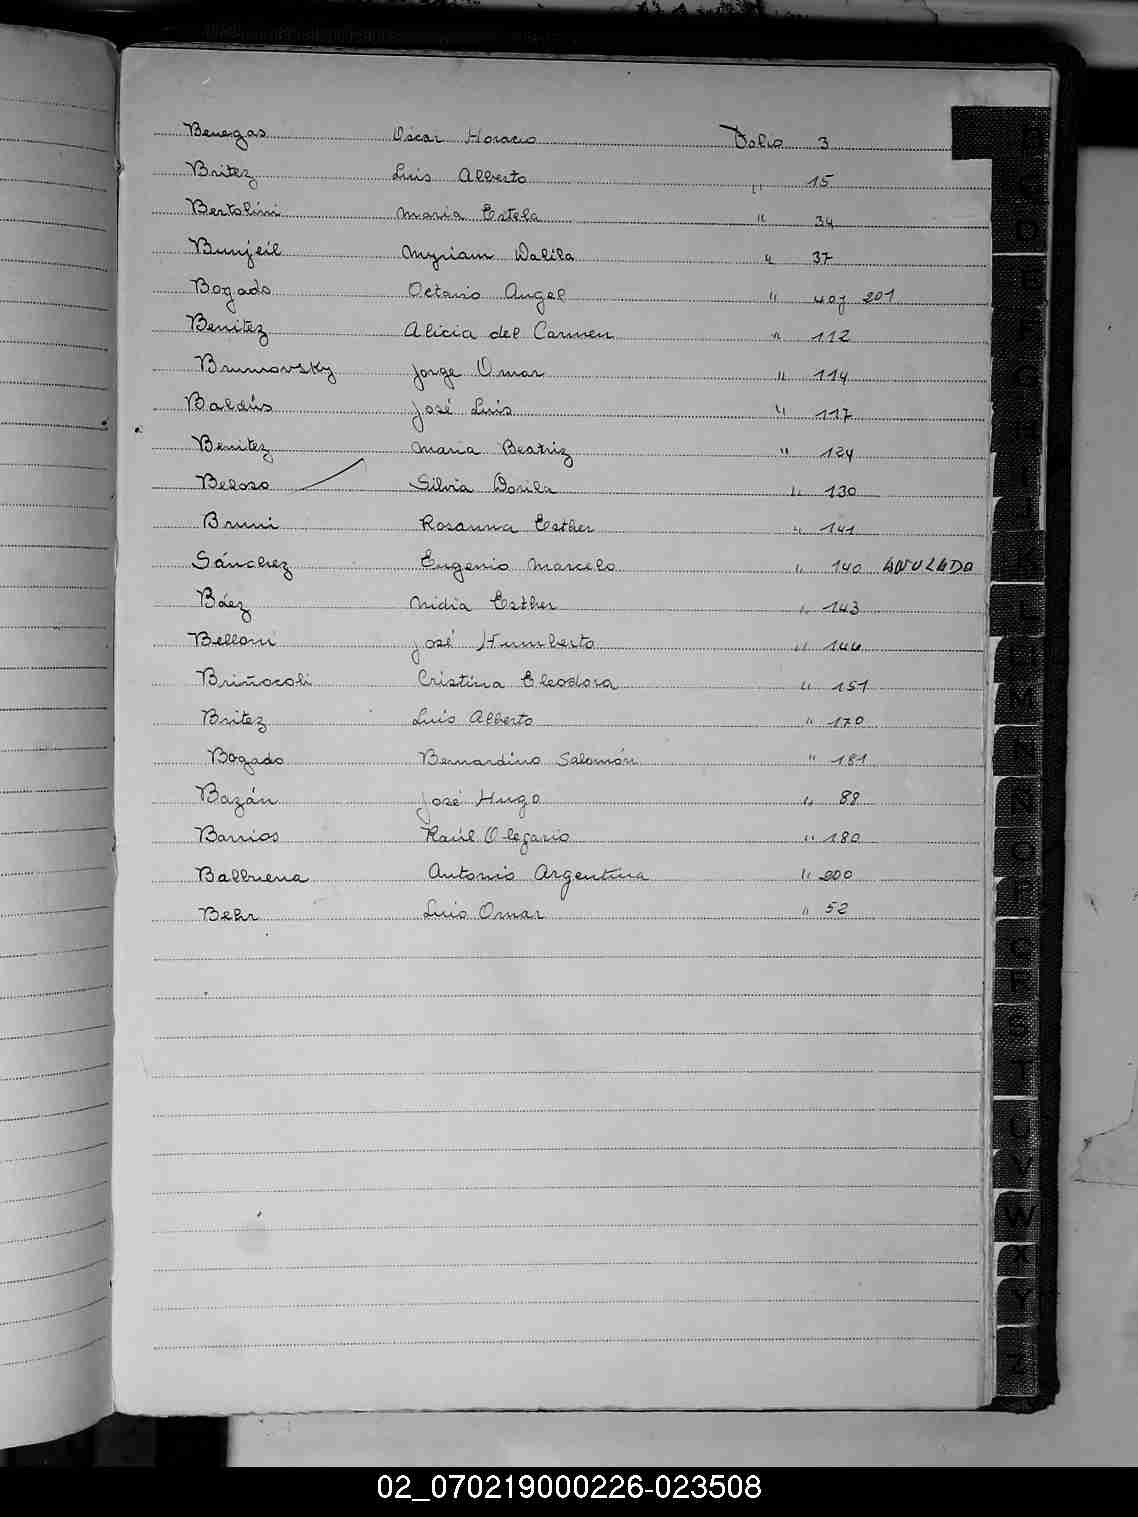 Benegas Oscar Horacio Folio 3
Britez Luis Alberto " 15
Bertolini Maria Estela " 34
Bunjeil Myriam Dalila " 37
Bogado Octavio Angel " 40 y 201
Benitez Alicia del Carmen " 112
Brumovsky Jorge Omar " 114
Baldús José Luis " 117
Benitez Maria Beatriz " 124
Beloso Silvia Dorila " 130
Bruni Rosanna Esther " 141
Sánchez Eugenio Marcelo " 140 ANULADO
Báez Nidia Esther " 143
Belloni José Humberto " 144
Briñocoli Cristina Eleodora " 151
Britez Luis Alberto " 170
Bogado Bernardino Salomón " 181
Bazán José Hugo " 88
Barrios Raúl Olegario " 180
Balbuena Antonio Argentina " 200
Behr Luis Omar " 52
02_070219000226-023508